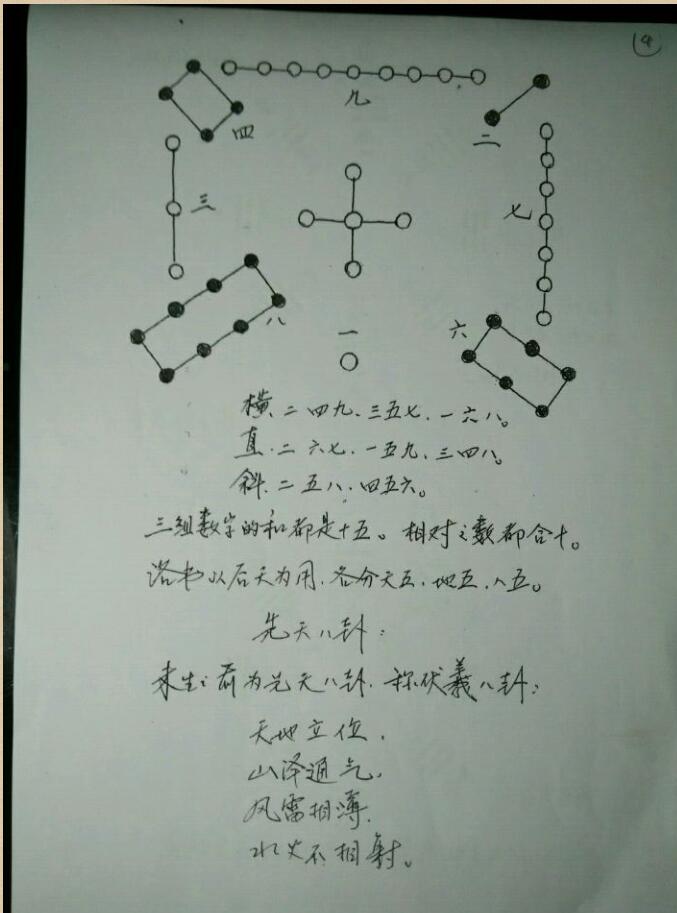 4
九
四
二
三
七
八
一
六
横、二四九、三五七、一六八。
直、二六七、一五九、三四八。
斜、二五八、四五六。
三组数字的和都是十五。相对之数都合十。
洛书以后天为用、各分天五、地五、人五。
先天八卦:
未生之前为先天八卦、称伏羲八卦:
天地立位、
山泽通气、
风雷相薄、
水火不相射。